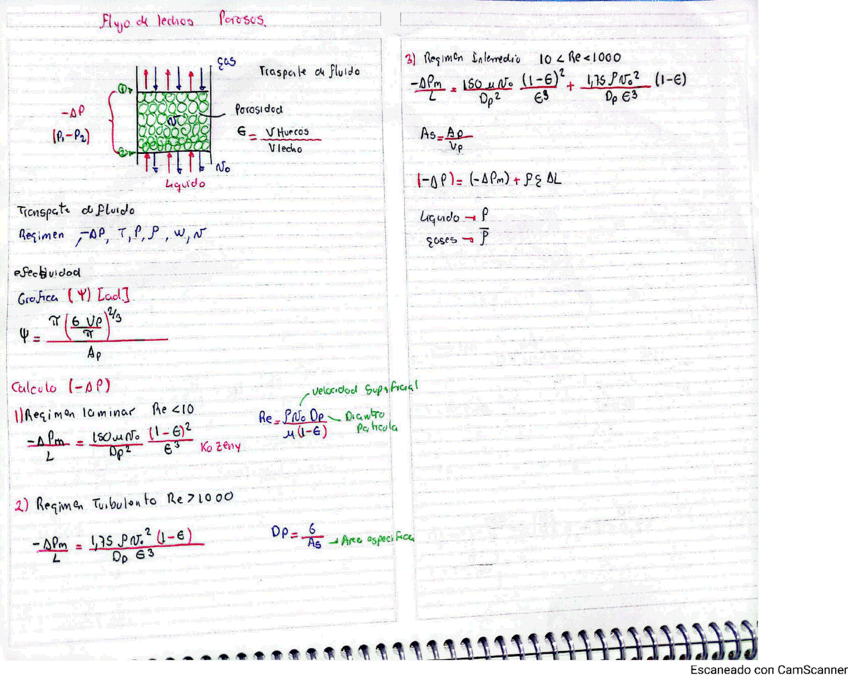 Flujo de lechos Porosos.
gas
Trasporte de fluido
①
-ΔP
(P₁-P₂)
Porosidad
ϵ = V Huecos / V lecho
②
N₀
Liquido
Transpate de fluido
Regimen, -ΔP, T, P, ρ, w, N
Grafica (Ψ) [ad]
Ψ = π (6 Vp / π)^2/3 / Ap
Calculo (-ΔP)
1) Regimen laminar Re < 10
-ΔPm / L = 150 μ N₀ / Dp² (1-ϵ)² / ϵ³ Kozeny
velocidad Superficial
Re = ρ N₀ Dp / μ (1-ϵ)
Diantro
Paticula
2) Regimen Turbulento Re > 1000
-ΔPm / L = 1,75 ρ N₀² (1-ϵ) / Dp ϵ³
Dp = 6 / As → Area especifica
3) Regimen Intermedio 10 < Re < 1000
-ΔPm / L = 150 μ N₀ / Dp² (1-ϵ)² / ϵ³ + 1,75 ρ N₀² / Dp ϵ³ (1-ϵ)
As = Ap / Vp
(-ΔP) = (-ΔPm) + ρ g ΔL
Liquido → ρ
gases → ρ̅
Escaneado con CamScanner